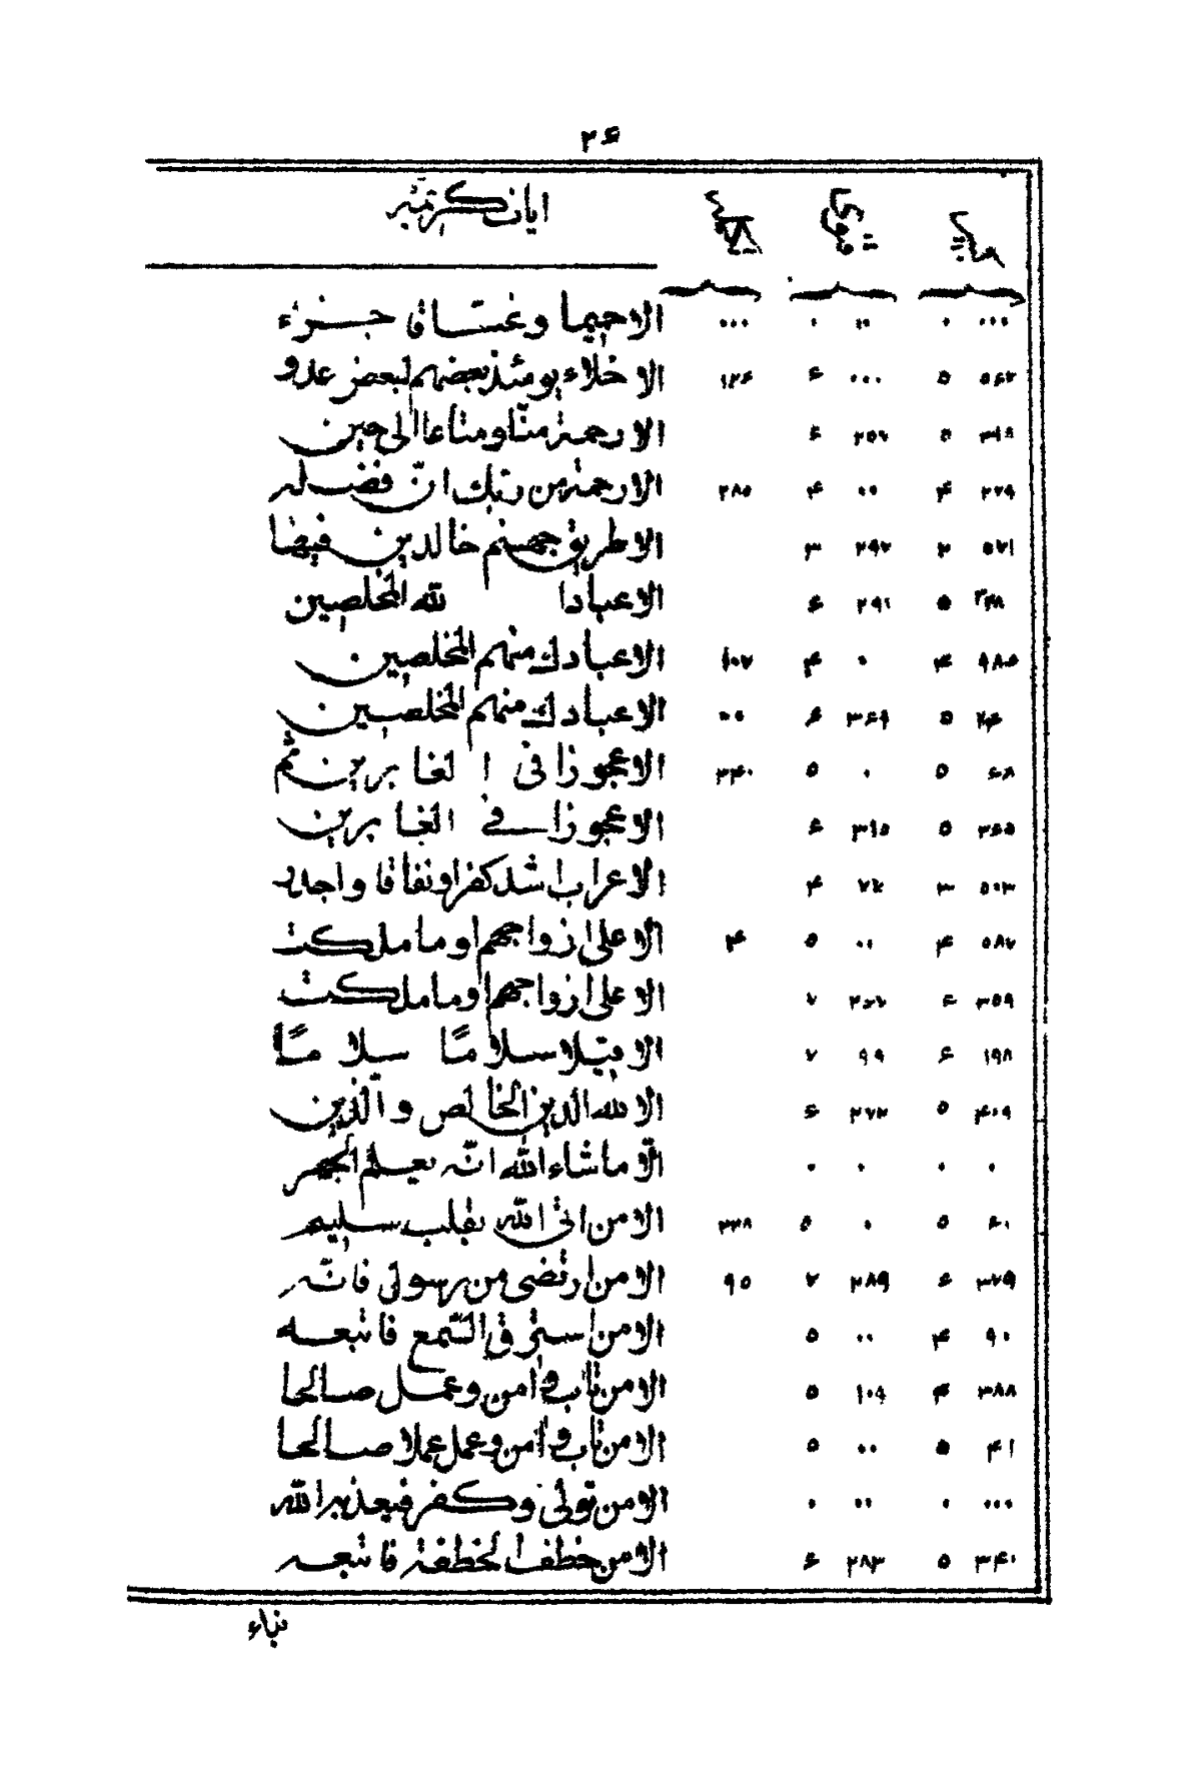 ۲۶
ایات کریمه
۰۰۰ ۰ ۰۰ ۰ ۰۰۰ الا حمیما و غساقا جزاء
۵۶۲ ۵ ۰۰۰ ۶ ۱۲۶ الاخلاء یومئذ بعضهم لبعض عدو
۳۱۹ ۵ ۲۵۶ ۶ الا رحمة منّا و متاعا الی حین
۲۷۹ ۴ ۰۰ ۴ ۲۸۵ الا رحمة من ربّك انّ فضله
۵۷۱ ۲ ۲۹۲ ۳ الا طریق جهنم خالدین فیها
۵ ۲۹۱ ۶ الا عباد الله المخلصین
۹۸۵ ۴ ۰ ۴ ۱۰۷ الا عبادك منهم المخلصین
۵ ۳۶۹ ۶ ۰۰ الا عبادك منهم المخلصین
۶۸ ۵ ۰ ۵ ۲۴۰ الا عجوزا فی الغابرین ثم
۳۶۵ ۵ ۳۱۵ ۶ الا عجوزا فی الغابرین
۵۰۳ ۳ ۷۲ ۴ الاعراب اشد کفرا و نفاقا و اجدر
۵۸۷ ۴ ۰۰ ۵ ۴ الا علی ازواجهم او ما ملکت
۳۵۹ ۶ ۷ الا علی ازواجهم او ما ملکت
۱۹۸ ۶ ۹۹ ۷ الا قیلا سلامًا سلامًا
۴۰۹ ۵ ۲۷۲ ۶ الا لله الدین الخالص و الّذین
۰ ۰ ۰ ۰ الّا ما شاء الله انّه یعلم الجهر
۶۰ ۵ ۰ ۵ ۲۲۸ الا من اتی الله بقلب سلیم
۳۷۹ ۶ ۲۸۹ ۷ ۹۵ الا من ارتضی من رسول فانّه
۹۰ ۴ ۰۰ ۵ الا من استرق السّمع فاتبعه
۳۸۸ ۴ ۱۰۹ ۵ الا من تاب و امن و عمل صالحا
۴۱ ۵ ۰۰ ۵ الا من تاب و امن و عمل عملا صالحا
۰۰۰ ۰ ۰۰ ۰ الا من تولی و کفر فیعذبه الله
۳۴۰ ۵ ۲۸۳ ۶ الا من خطف الخطفة فاتبعه
نباء